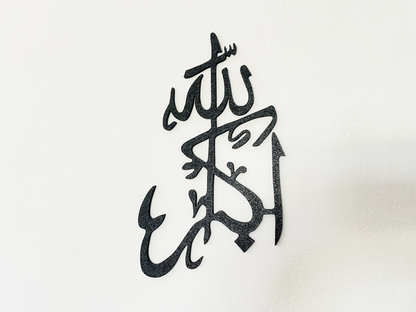 الله
أكبر